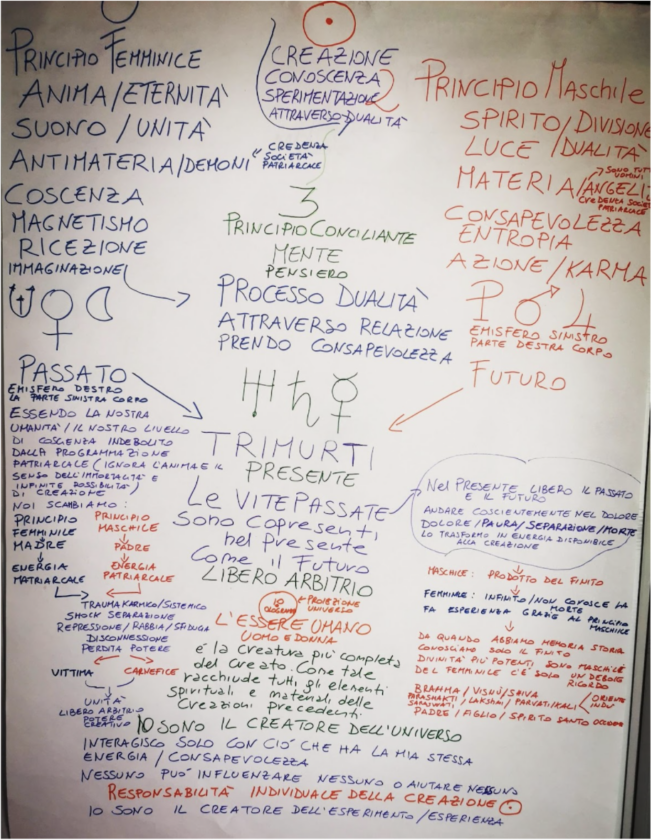 PRINCIPIO FEMMINICE
ANIMA/ETERNITÀ
SUONO/UNITÀ
ANTIMATERIA/DEMONI
CREDENZA
SOCIETÀ
PATRIARCALE
COSCENZA
MAGNETISMO
RICEZIONE
IMMAGINAZIONE
PASSATO
EMISFERO DESTRO
LA PARTE SINISTRA CORPO
ESSENDO LA NOSTRA
UMANITÀ/IL NOSTRO LIVELLO
DI COSCENZA INDEBOLITO
DALLA PROGRAMMAZIONE
PATRIARCALE (IGNORA L'ANIMA E IL
SENSO DELL'IMMORTALITÀ E
INFINITE POSSIBILITÀ)
DI CREAZIONE
NOI SCAMBIAMO:
PRINCIPIO
FEMMINILE
MADRE
ENERGIA
MATRIARCALE
PRINCIPIO
MASCHILE
PADRE
ENERGIA
PATRIARCALE
TRAUMA KARMICO/SISTEMICO
SHOCK SEPARAZIONE
REPRESSIONE/RABBIA/SFIDUGA
DISCONNESSIONE
PERDITA POTERE
VITTIMA
CARNEFICE
UNITÀ
LIBERO ARBITRIO
POTERE
CREATIVO
CREAZIONE
CONOSCENZA
SPERIMENTAZIONE
ATTRAVERSO DUALITÀ
2
3
PRINCIPIO CONCILIANTE
MENTE
PENSIERO
PROCESSO DUALITÀ
ATTRAVERSO RELAZIONE
PRENDO CONSAPEVOLEZZA
TRIMURTI
PRESENTE
LE VITE PASSATE
SONO COPRESENTI
NEL PRESENTE
COME IL FUTURO
LIBERO ARBITRIO
IO
PROIEZIONE
UNIVERSO
L'ESSERE UMANO
UOMO E DONNA
è la creatura più completa
del creato. Come tale
racchiude tutti gli elementi
spirituali e materiali delle
Creazioni precedenti.
PRINCIPIO MASCHILE
SPIRITO/DIVISIONE
LUCE/DUALITÀ
MATERIA/ANGELI
SONO TUTTI
UOMINI
CREDENZA SOCIETÀ
PATRIARCALE
CONSAPEVOLEZZA
ENTROPIA
AZIONE/KARMA
EMISFERO SINISTRO
PARTE DESTRA CORPO
FUTURO
NEL PRESENTE LIBERO IL PASSATO
E IL FUTURO
ANDARE COSCIENTEMENTE NEL DOLORE
DOLORE/PAURA/SEPARAZIONE/MORTE
LO TRASFORMO IN ENERGIA DISPONIBILE
ALLA CREAZIONE
MASCHICE: PRODOTTO DEL FINITO
FEMMINICE: INFINITO/NON CONOSCE LA
MORTE
FA ESPERIENZA GRAZIE AL PRINCIPIO
MASCHICE
DA QUANDO ABBIAMO MEMORIA STORICA
CONOSCIAMO SOLO IL FINITO
DIVINITÀ PIÙ POTENTI SONO MASCHILE
DEL FEMMINILE C'È SOLO UN DEBOLE
RICORDO
BRAHMA/VISNÙ/SHIVA
PARASHAKTI
SARASWATI/LAKSHMI/PARVATI/KALI
ORIENTE
INDÙ
PADRE/FIGLIO/SPIRITO SANTO
IO SONO IL CREATORE DELL'UNIVERSO
INTERAGISCO SOLO CON CIÓ CHE HA LA MIA STESSA
ENERGIA/CONSAPEVOLEZZA
NESSUNO PUÓ INFLUENZARE NESSUNO O AIUTARE NESSUNO
RESPONSABILITÀ INDIVIDUALE DELLA CREAZIONE
IO SONO IL CREATORE DELL'ESPERIMENTO/ESPERIENZA